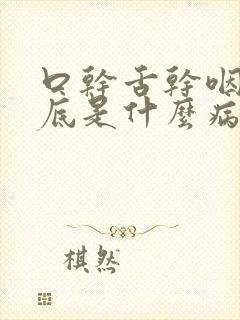 口幹舌幹咽
底是什麼病
棋然